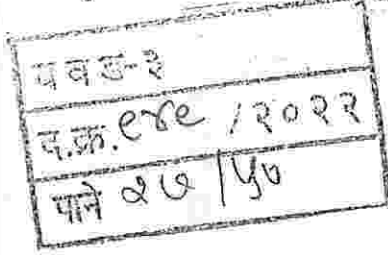 पवड-३
द.क्र. ९४९ / २०२२
पाने २७ / ५७